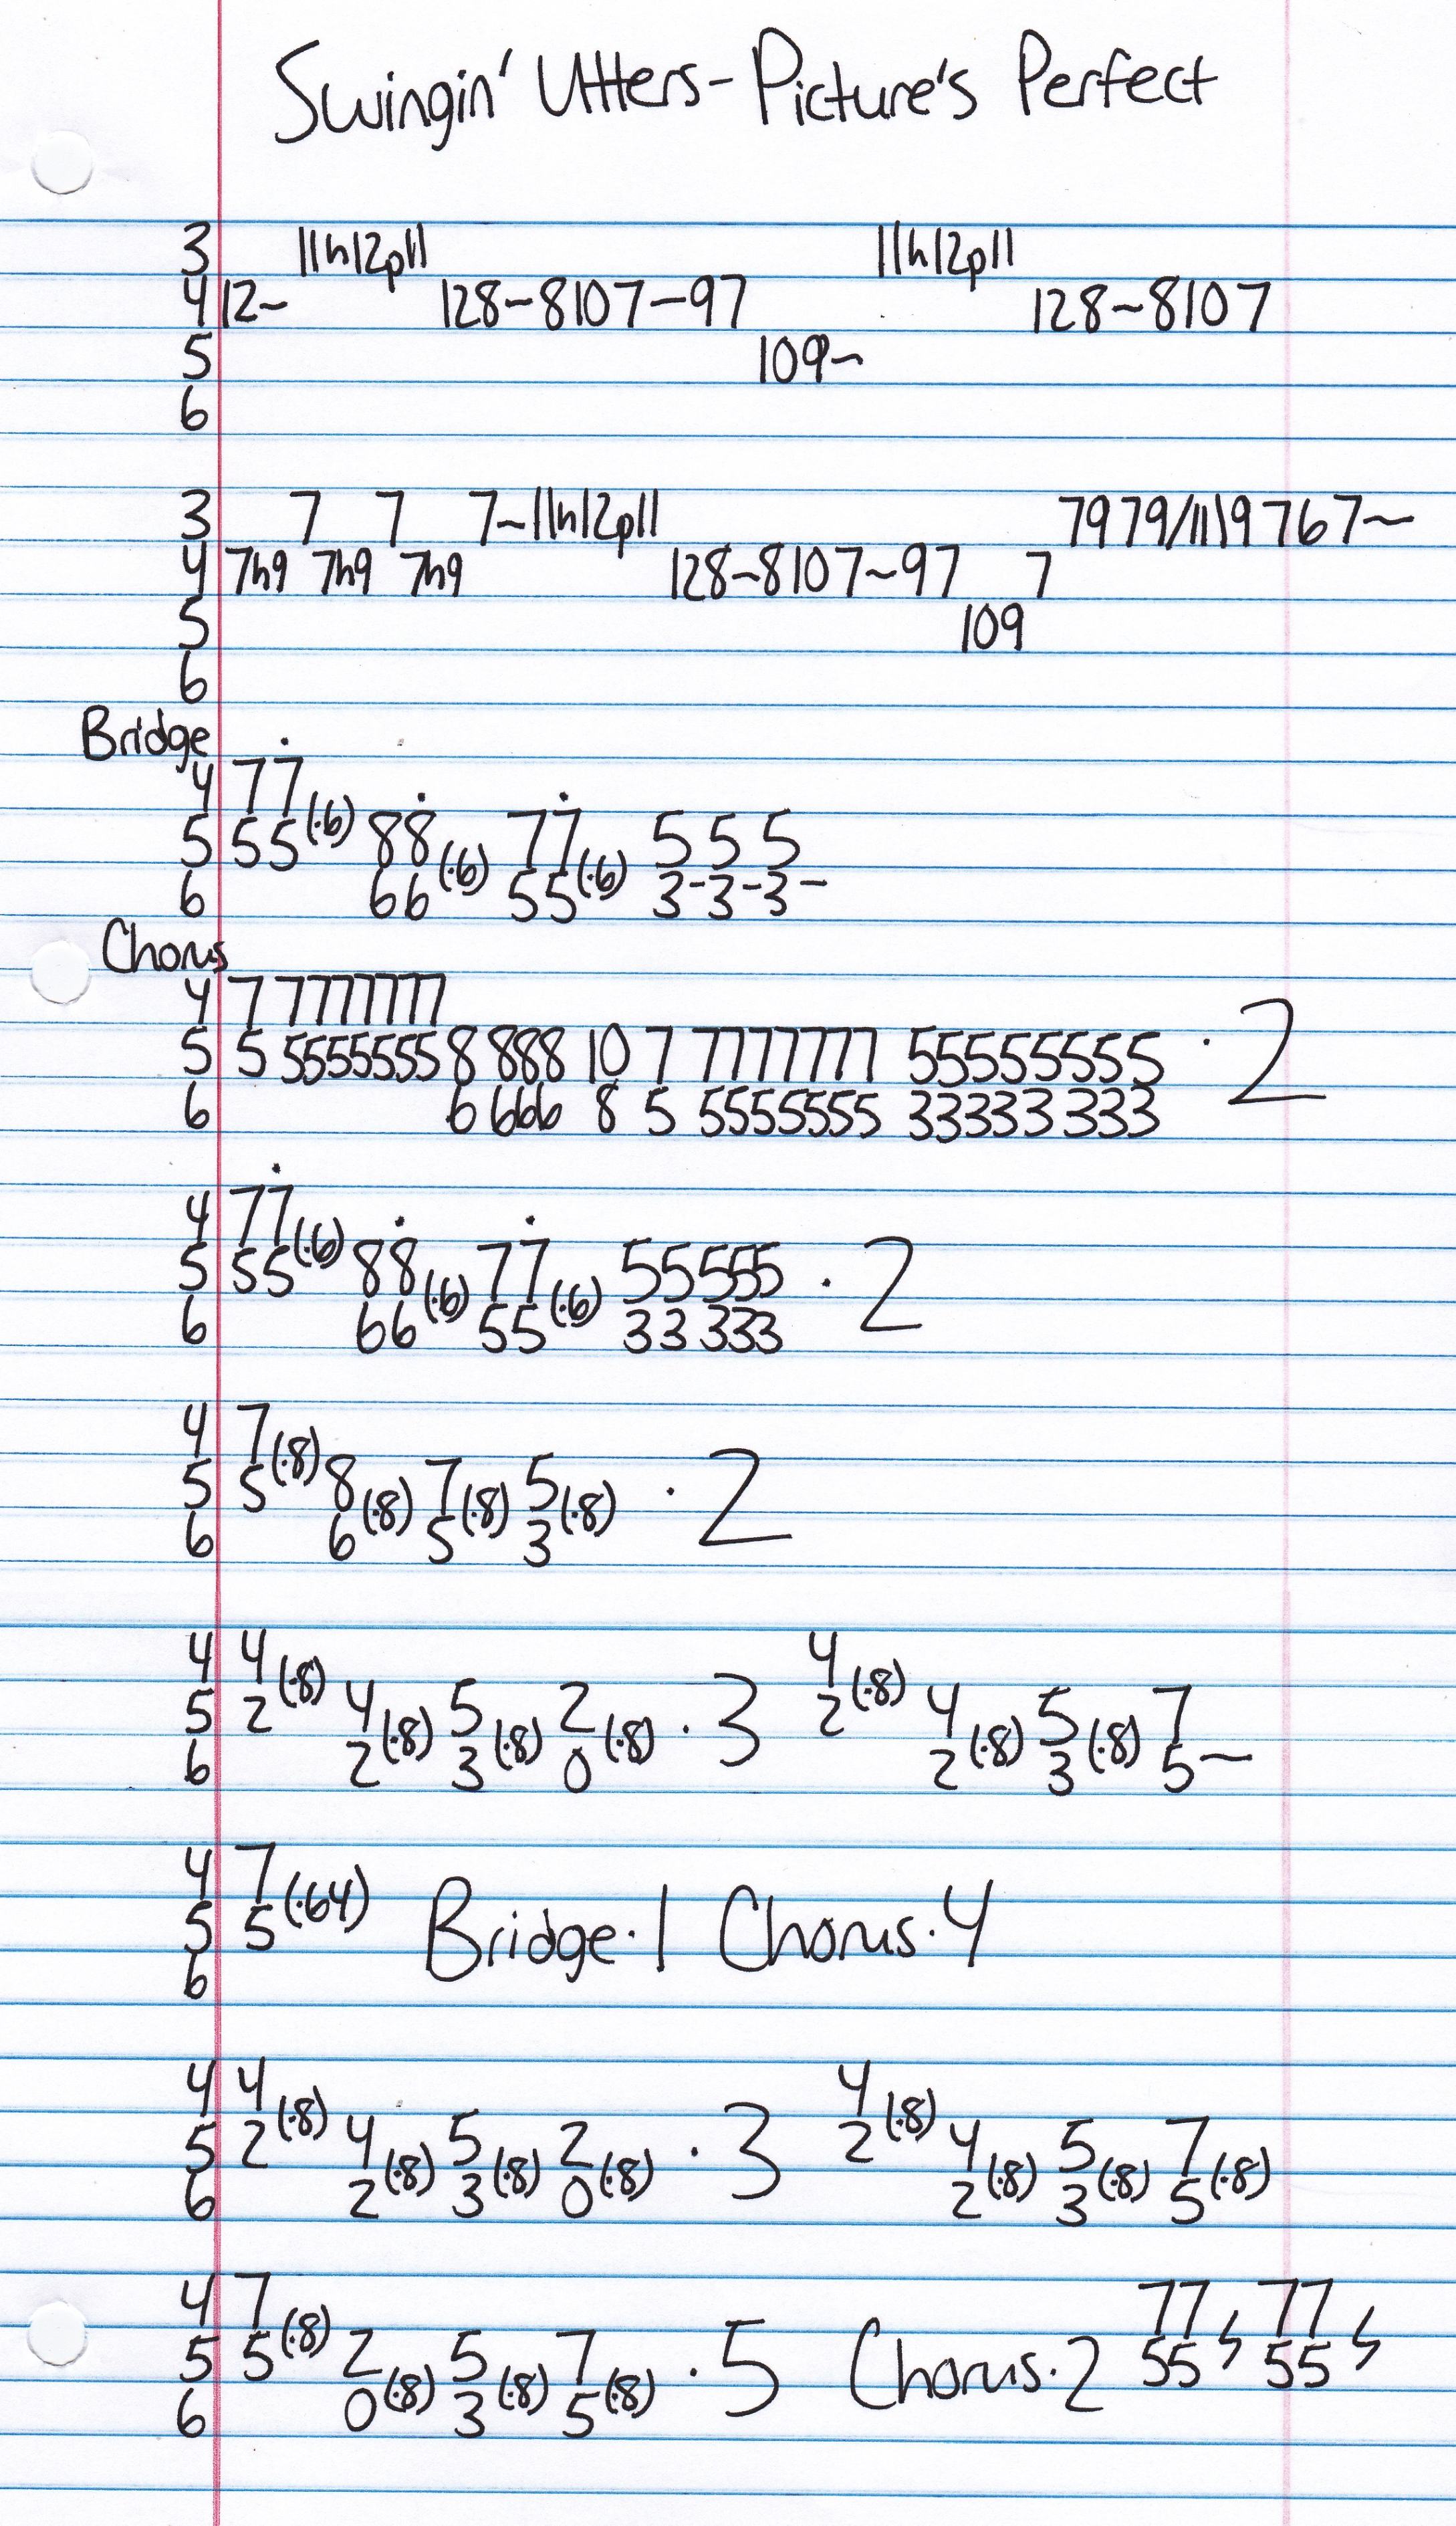 Swingin' Utters - Picture's Perfect
3 11h12p11 11h12p11
4 12~ 128~8107~97 128~8107
5 109~
6
3 7 7 7~11h12p11 7979/11\9767~
4 7h9 7h9 7h9 128~8107~97 7
5 109
6
Bridge
4 77
5 55(·6) 88 77 555
6 66(·6) 55(·6) 3-3-3-
Chorus
4 7 7777777
5 5 5555555 8 888 10 7 7777777 55555555 ·2
6 6 666 8 5 5555555 33333333
4 77
5 55(·6) 88 77 55555 ·2
6 66(·6) 55(·6) 33333
4 7
5 5(·8) 8 7 5 ·2
6 6(·8) 5(·8) 3(·8)
4 4 4
5 2(·8) 4 5 2 ·3 2(·8) 4 5 7
6 2(·8) 3(·8) 0(·8) 2(·8) 3(·8) 5~
4 7
5 5(·64) Bridge·1 Chorus·4
6
4 4 4
5 2(·8) 4 5 2 ·3 2(·8) 4 5 7
6 2(·8) 3(·8) 0(·8) 2(·8) 3(·8) 5(·8)
4 7 77 77
5 5(·8) 2 5 7 ·5 Chorus·2 55 55
6 0(·8) 3(·8) 5(·8)